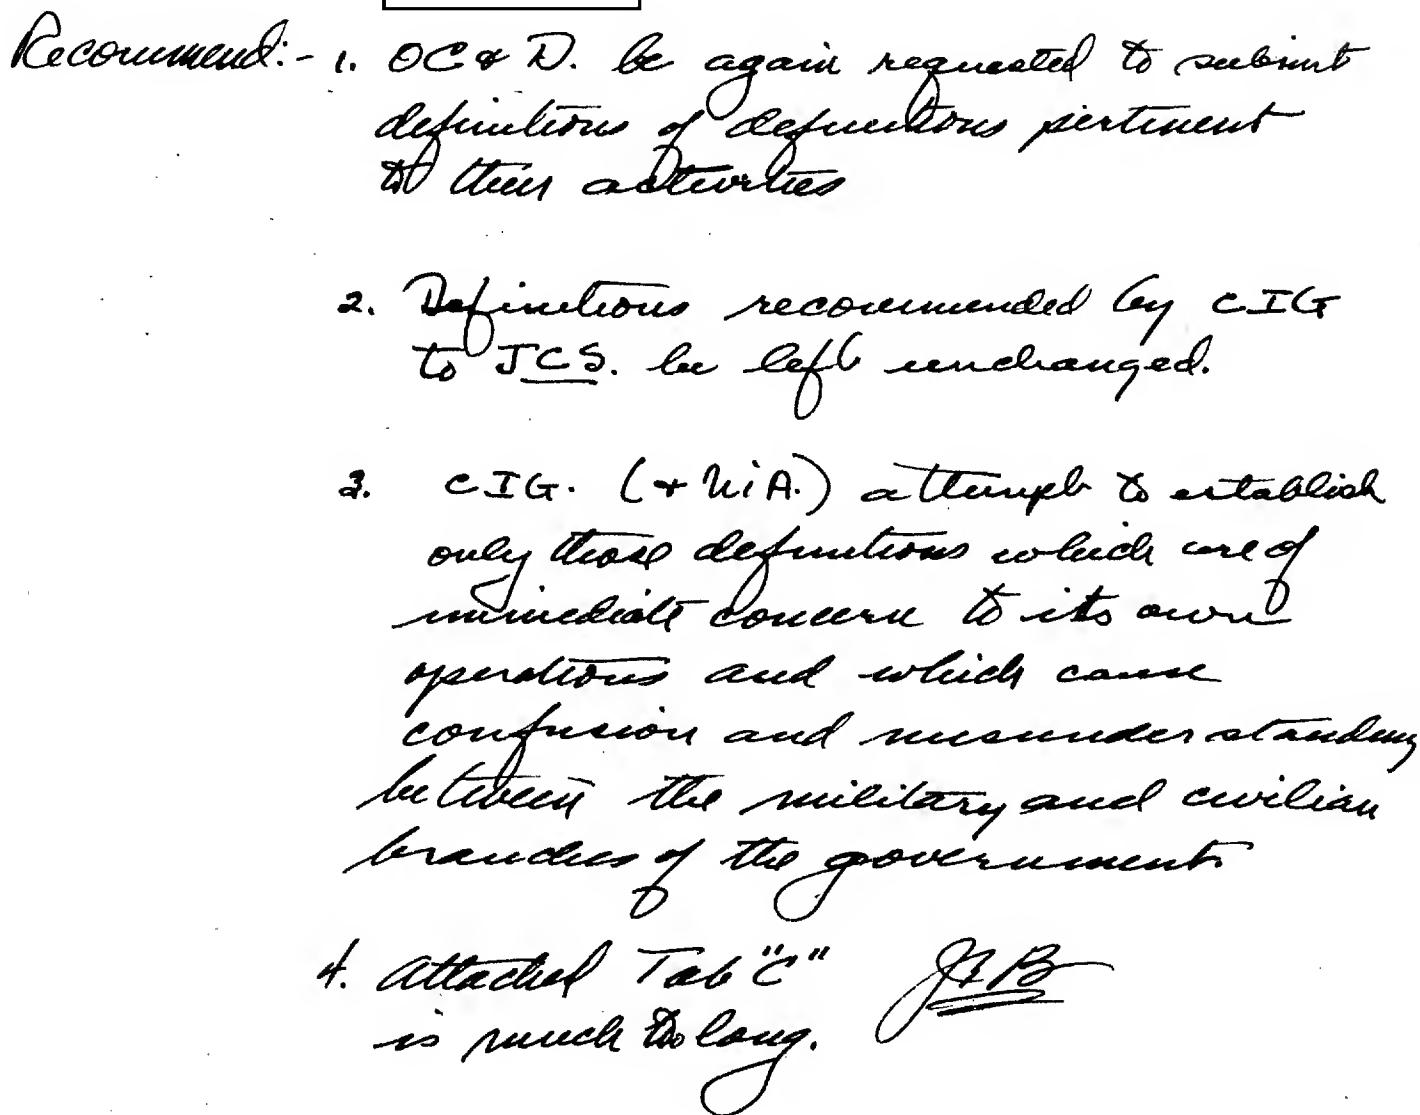 Recommend:- 1. OC & D. be again requested to submit
definitions of definitions pertinent
to their activities
2. Definitions recommended by CIG
to JCS. be left unchanged.
3. CIG. (+ NIA.) attempt to establish
only those definitions which are of
immediate concern to its own
operations and which cause
confusion and misunderstanding
between the military and civilian
branches of the government.
4. Attached Tab "C"
is much too long.
JAB